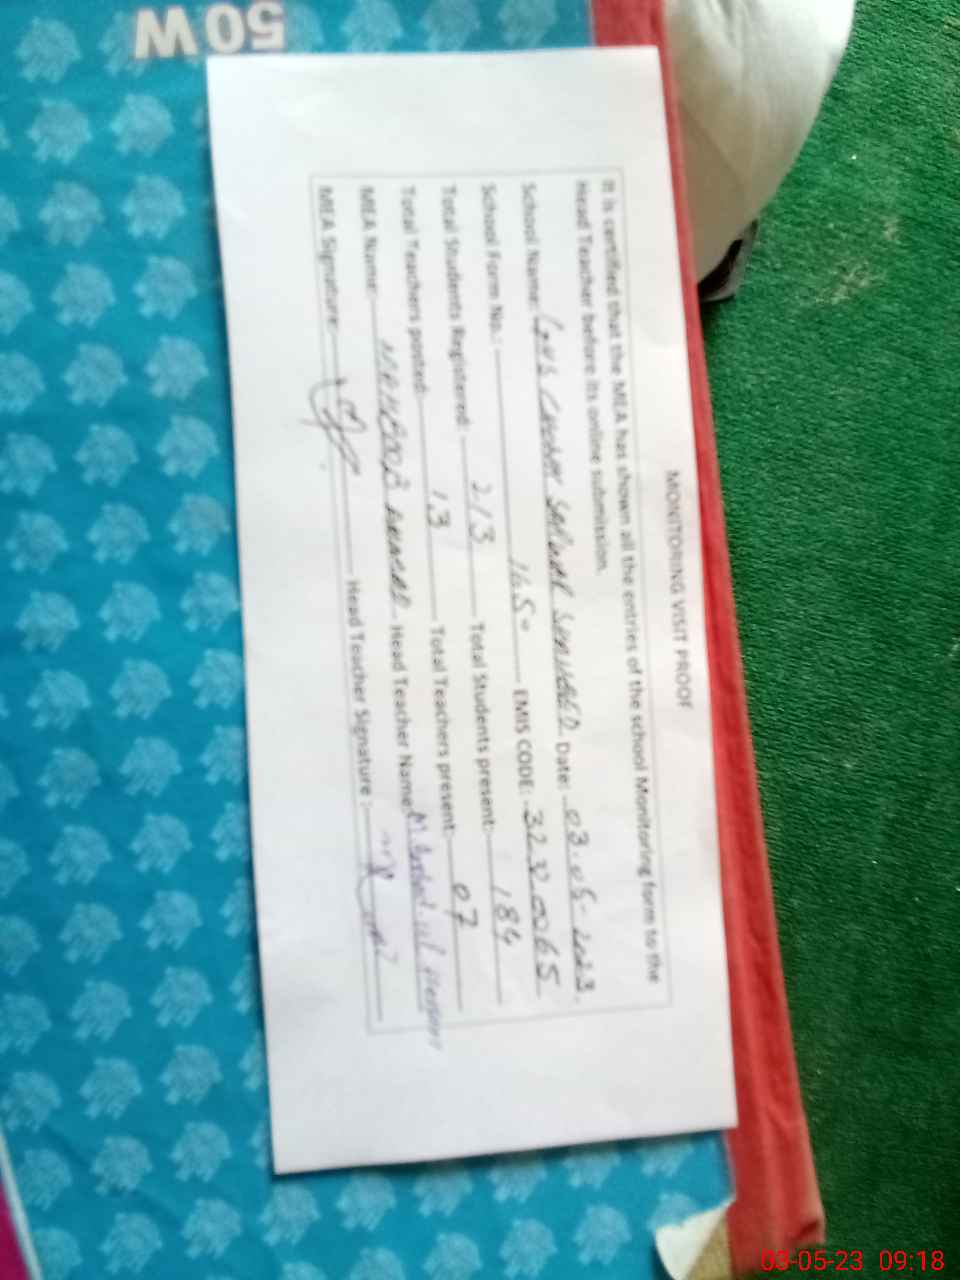 50W
MONITORING VISIT PROOF
It is certified that the MEA has shown all the entries of the school Monitoring form to the
Head Teacher before its online submission.
School Name: GHS Date: 03-05-2023
School Form No.: EMIS CODE: 32320065
Total Students Registered: 213 Total Students present: 184
Total Teachers posted: 13 Total Teachers present: 07
MEA Name: MAHBOOB AHMAD Head Teacher Name: M.
MEA Signature: Head Teacher Signature:
03-05-23 09:18